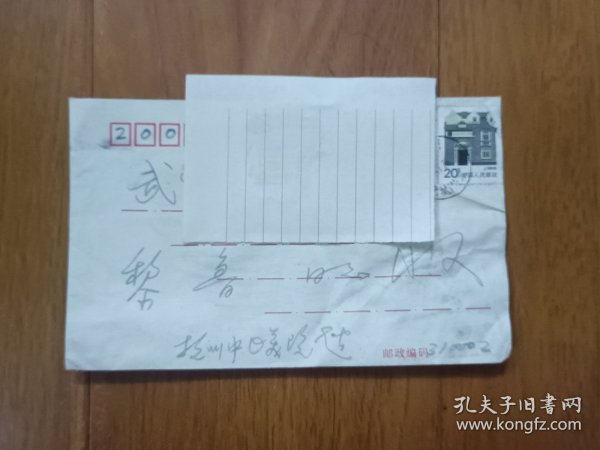 200
20分
中国人民邮政
武
黎鲁
收
杭州中国美院
邮政编码 310002
孔夫子旧书网
www.kongfz.com